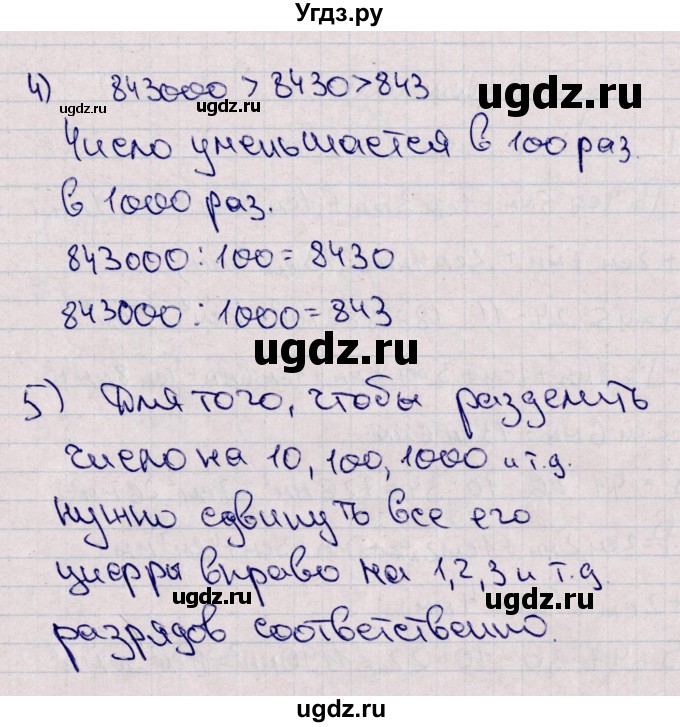 Угдз.ру
4) 843000 > 8430 > 843
ugdz.ru
ugdz.ru
ugdz.ru
Число уменьшается в 100 раз.
в 1000 раз.
843000 : 100 = 8430
843000 : 1000 = 843
ugdz.ru
5) Для того, чтобы разделить
число на 10, 100, 1000 и т.д.
нужно сдвинуть все его
цифры вправо на 1, 2, 3 и т.д.
ugdz.ru
ugdz.ru
разрядов соответственно.
ugdz.ru